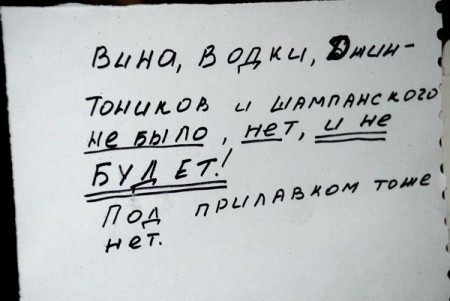 Вина, водки, Джин-
тоников и шампанского
не было, нет, и не
БУДЕТ!
Под прилавком тоже
нет.